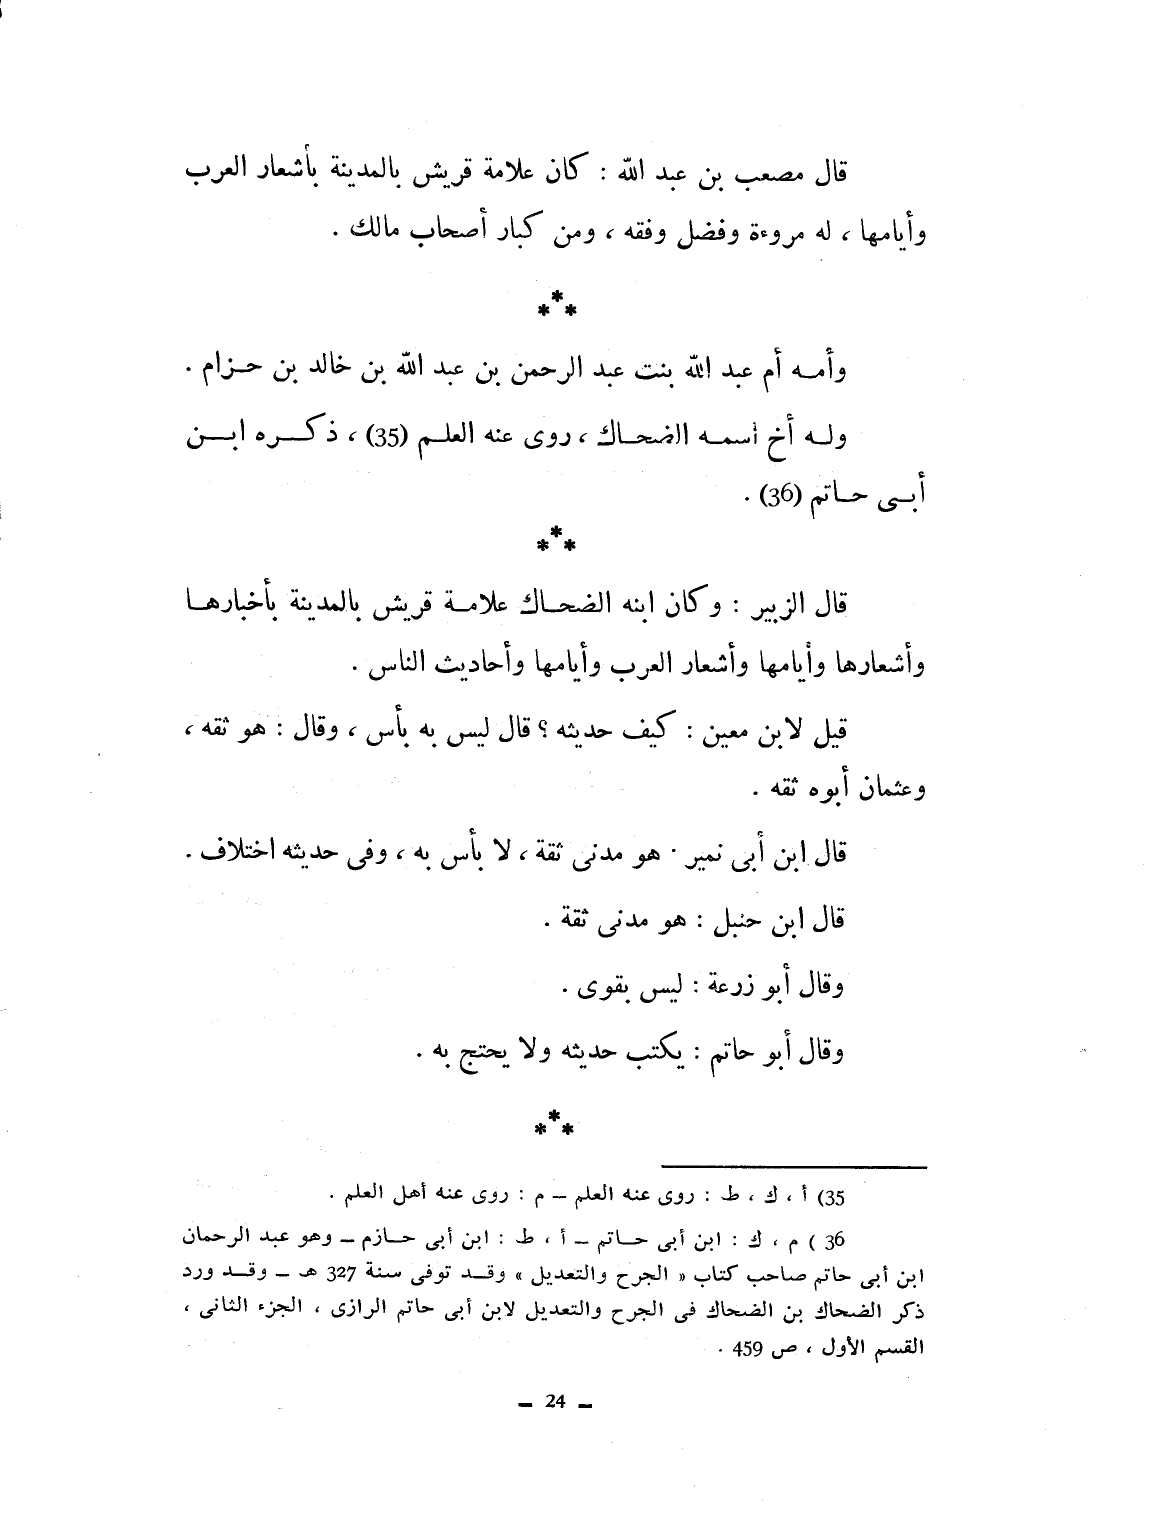 قال مصعب بن عبد الله : كان علامة قريش بالمدينة بأشعار العرب
وأيامها ، له مروءة وفضل وفقه ، ومن كبار أصحاب مالك .
***
وأمه أم عبد الله بنت عبد الرحمن بن عبد الله بن خالد بن حزام .
وله أخ أسمه الضحاك ، روى عنه العلم (35) ، ذكره ابن
أبى حاتم (36) .
***
قال الزبير : وكان ابنه الضحاك علامة قريش بالمدينة بأخبارها
وأشعارها وأيامها وأشعار العرب وأيامها وأحاديث الناس .
قيل لابن معين : كيف حديثه ؟ قال ليس به بأس ، وقال : هو ثقه ،
وعثمان أبوه ثقه .
قال ابن أبى نمير · هو مدنى ثقة ، لا بأس به ، وفى حديثه اختلاف .
قال ابن حنبل : هو مدنى ثقة .
وقال أبو زرعة : ليس بقوى .
وقال أبو حاتم : يكتب حديثه ولا يحتج به .
***
35) أ ، ك ، ط : روى عنه العلم – م : روى عنه أهل العلم .
36 ) م ، ك : ابن أبى حاتم – أ ، ط : ابن أبى حازم – وهو عبد الرحمان
ابن أبى حاتم صاحب كتاب « الجرح والتعديل » وقد توفى سنة 327 هـ – وقد ورد
ذكر الضحاك بن الضحاك فى الجرح والتعديل لابن أبى حاتم الرازى ، الجزء الثانى ،
القسم الأول ، ص 459 .
– 24 –